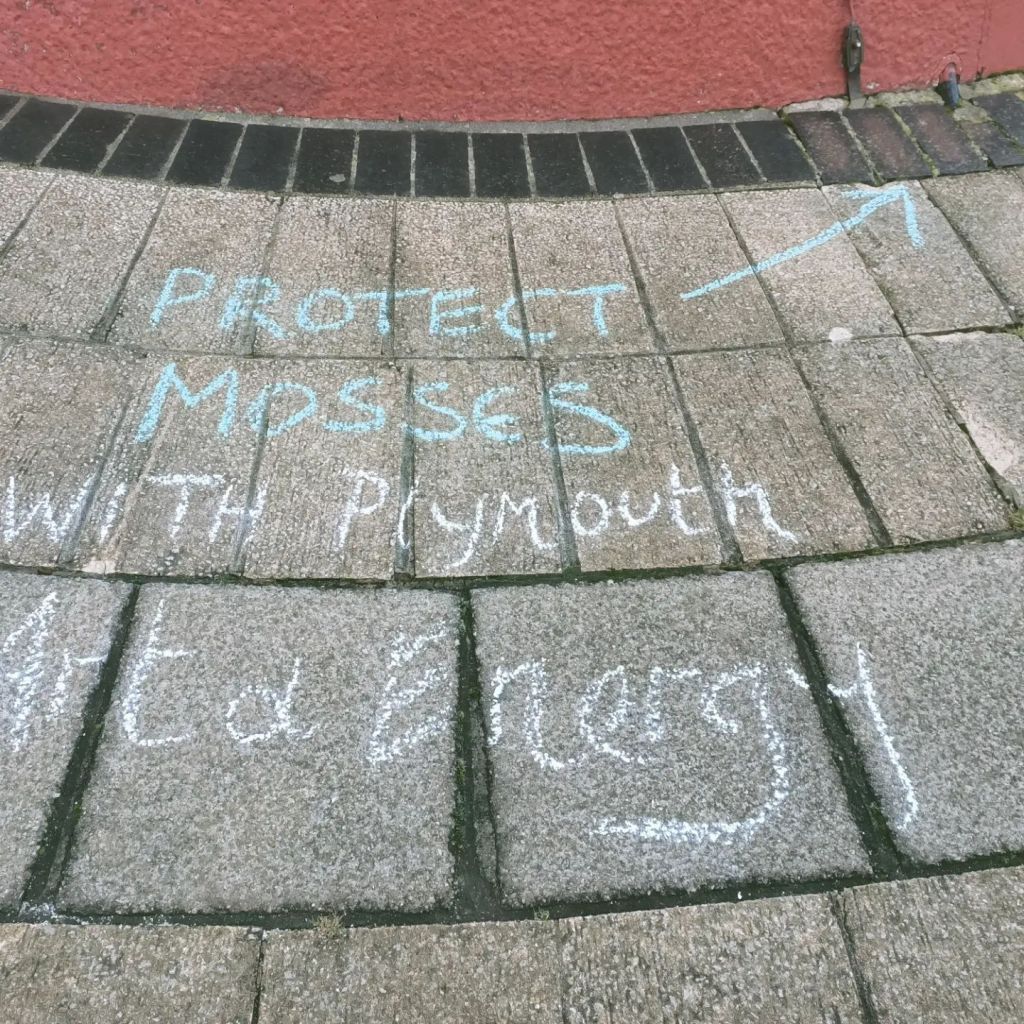 PROTECT
MOSSES
WITH Plymouth
Art & Energy